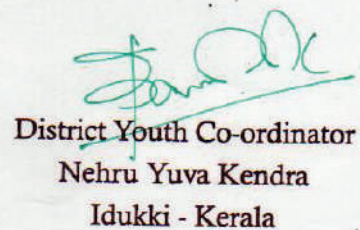 District Youth Co-ordinator
Nehru Yuva Kendra
Idukki - Kerala